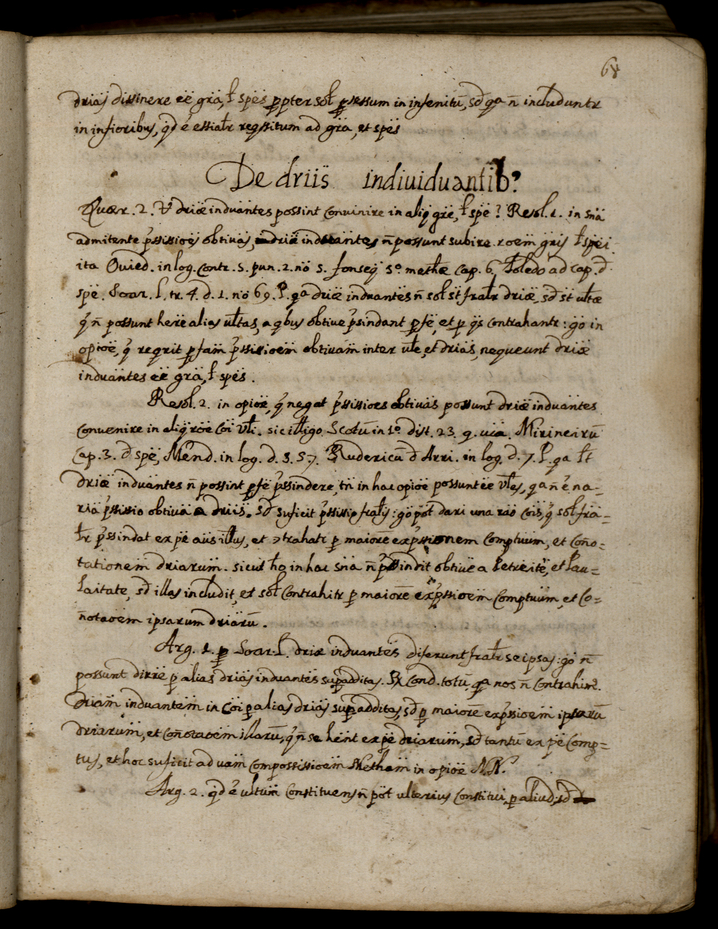 64
drias dissinere eë gra, ł spës ppter soł pssum in infenitũ, sd qa ñ includuntr
in infioribus, qd ë essiałr reqsitum ad gra, et spës
De driis indiuiduantib?
Quær. 2. driæ induantes possint convinire in aliq gre, ł spe? Resol. 1. in sña
admitente pssisioës obtivas, driæ induantes ñ possunt subire roem gris ł spëi
ita Ovied. in log. contr. 5. pun. 2. nö 5. fonseq 5º methæ cap. 6. Toledo ad cap. d
spë. Soar. L. tr. 4. d. 1. nö 69. P. qa driæ induantes ñ soł st frałr driæ, sd st ułtæ
q ñ possunt here alias ułtas, a qbus obtive psindant p së, et p qs contrahantr: go in
opiöë, q reqrit p fam pssisioëm obtivam inter ułe, et drias, nequeunt driæ
induantes eë gra, ł spës.
Resol. 2. in opiöë, q negat pssisioës obtivas possunt driæ induantes
convenire in aliq röë coi ułi. sic illigo Scotũ in 1º dist. 23. q. uia. Mirineirũ
cap. 3. d spë, Mend. in log. d. 3. 57. Rudericũ d Arri. in log. d. 7. P. qa łt
driæ induantes ñ possint p së pssindere, tñ in hac opiöë possunt ëe ułes, qa ñ ë na-
ria pssisia obtiva a driis. sd suficit pssisio frałis: go pöt dari una rao cois, q soł fra-
łr pssindat ex pë aus illus, et ɔtrahatr p maiorë expssionem comptuum, et coño-
tationëm driarum. sicut ho in hac sña ñ pssindit obtive a Petreitë, et Pau-
łaitate, sd illas includit, et soł contrahitr p maiorë expssioëm comptuum, et co-
ñotaöëm ipsarum driarũ.
Arg. 1. p Soar. P. driæ induantes diferunt frałr se ipsas: go ñ
possunt dirië p alias drias induantes supadditas. R Cond. totũ, qa nos ñ contrahim.
driam induantem in coi p alias drias supadditas, sd p maiorë expssioëm ipsarũ
driarum, et coñotaoëm illarũ, q ñ se hent ex pë driarum, sd tantũ ex pë comp-
tus, et hoc suficit ad uam compossissioëm Metham in opiöë N.R.
Arg. 2. qd ë ultum constituens ñ pöt ulterius constitui p aliud, sd